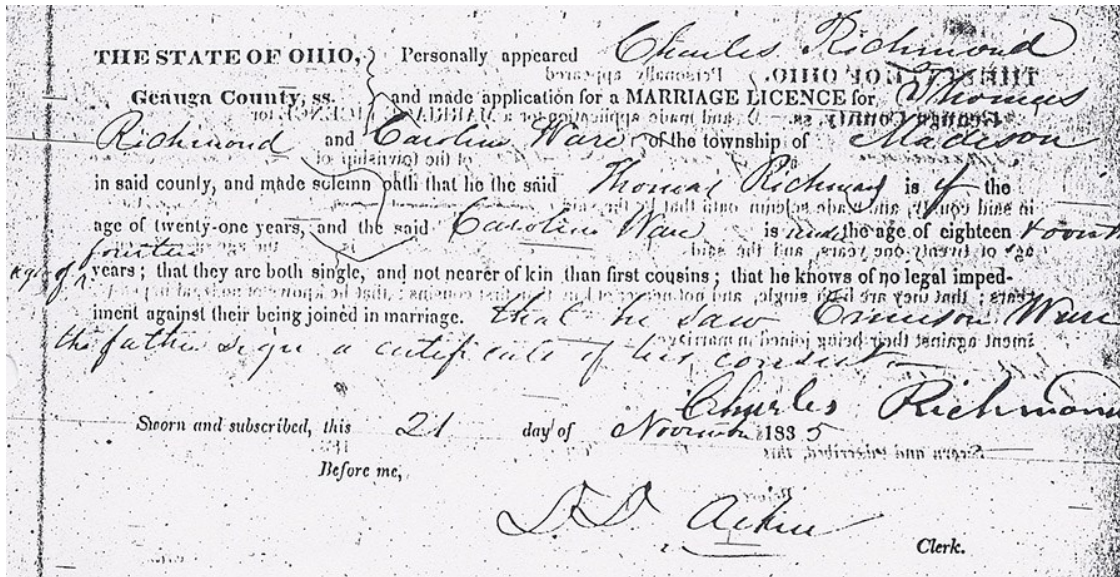 THE STATE OF OHIO, Personally appeared Charles Richmond
Geauga County, ss. and made application for a MARRIAGE LICENCE for Thomas
Richmond and Caroline Ware of the township of Madison
in said county, and made solemn oath that he the said Thomas Richmond is of the
age of twenty-one years, and the said Caroline Ware is under the age of eighteen & over the
age of fourteen years; that they are both single, and not nearer of kin than first cousins; that he knows of no legal imped-
iment against their being joined in marriage. that he saw Ware
the father sign a certificate of his consent
Charles Richmond
Sworn and subscribed, this 21 day of November 1835
Before me,
D. D. Aiken
Clerk.